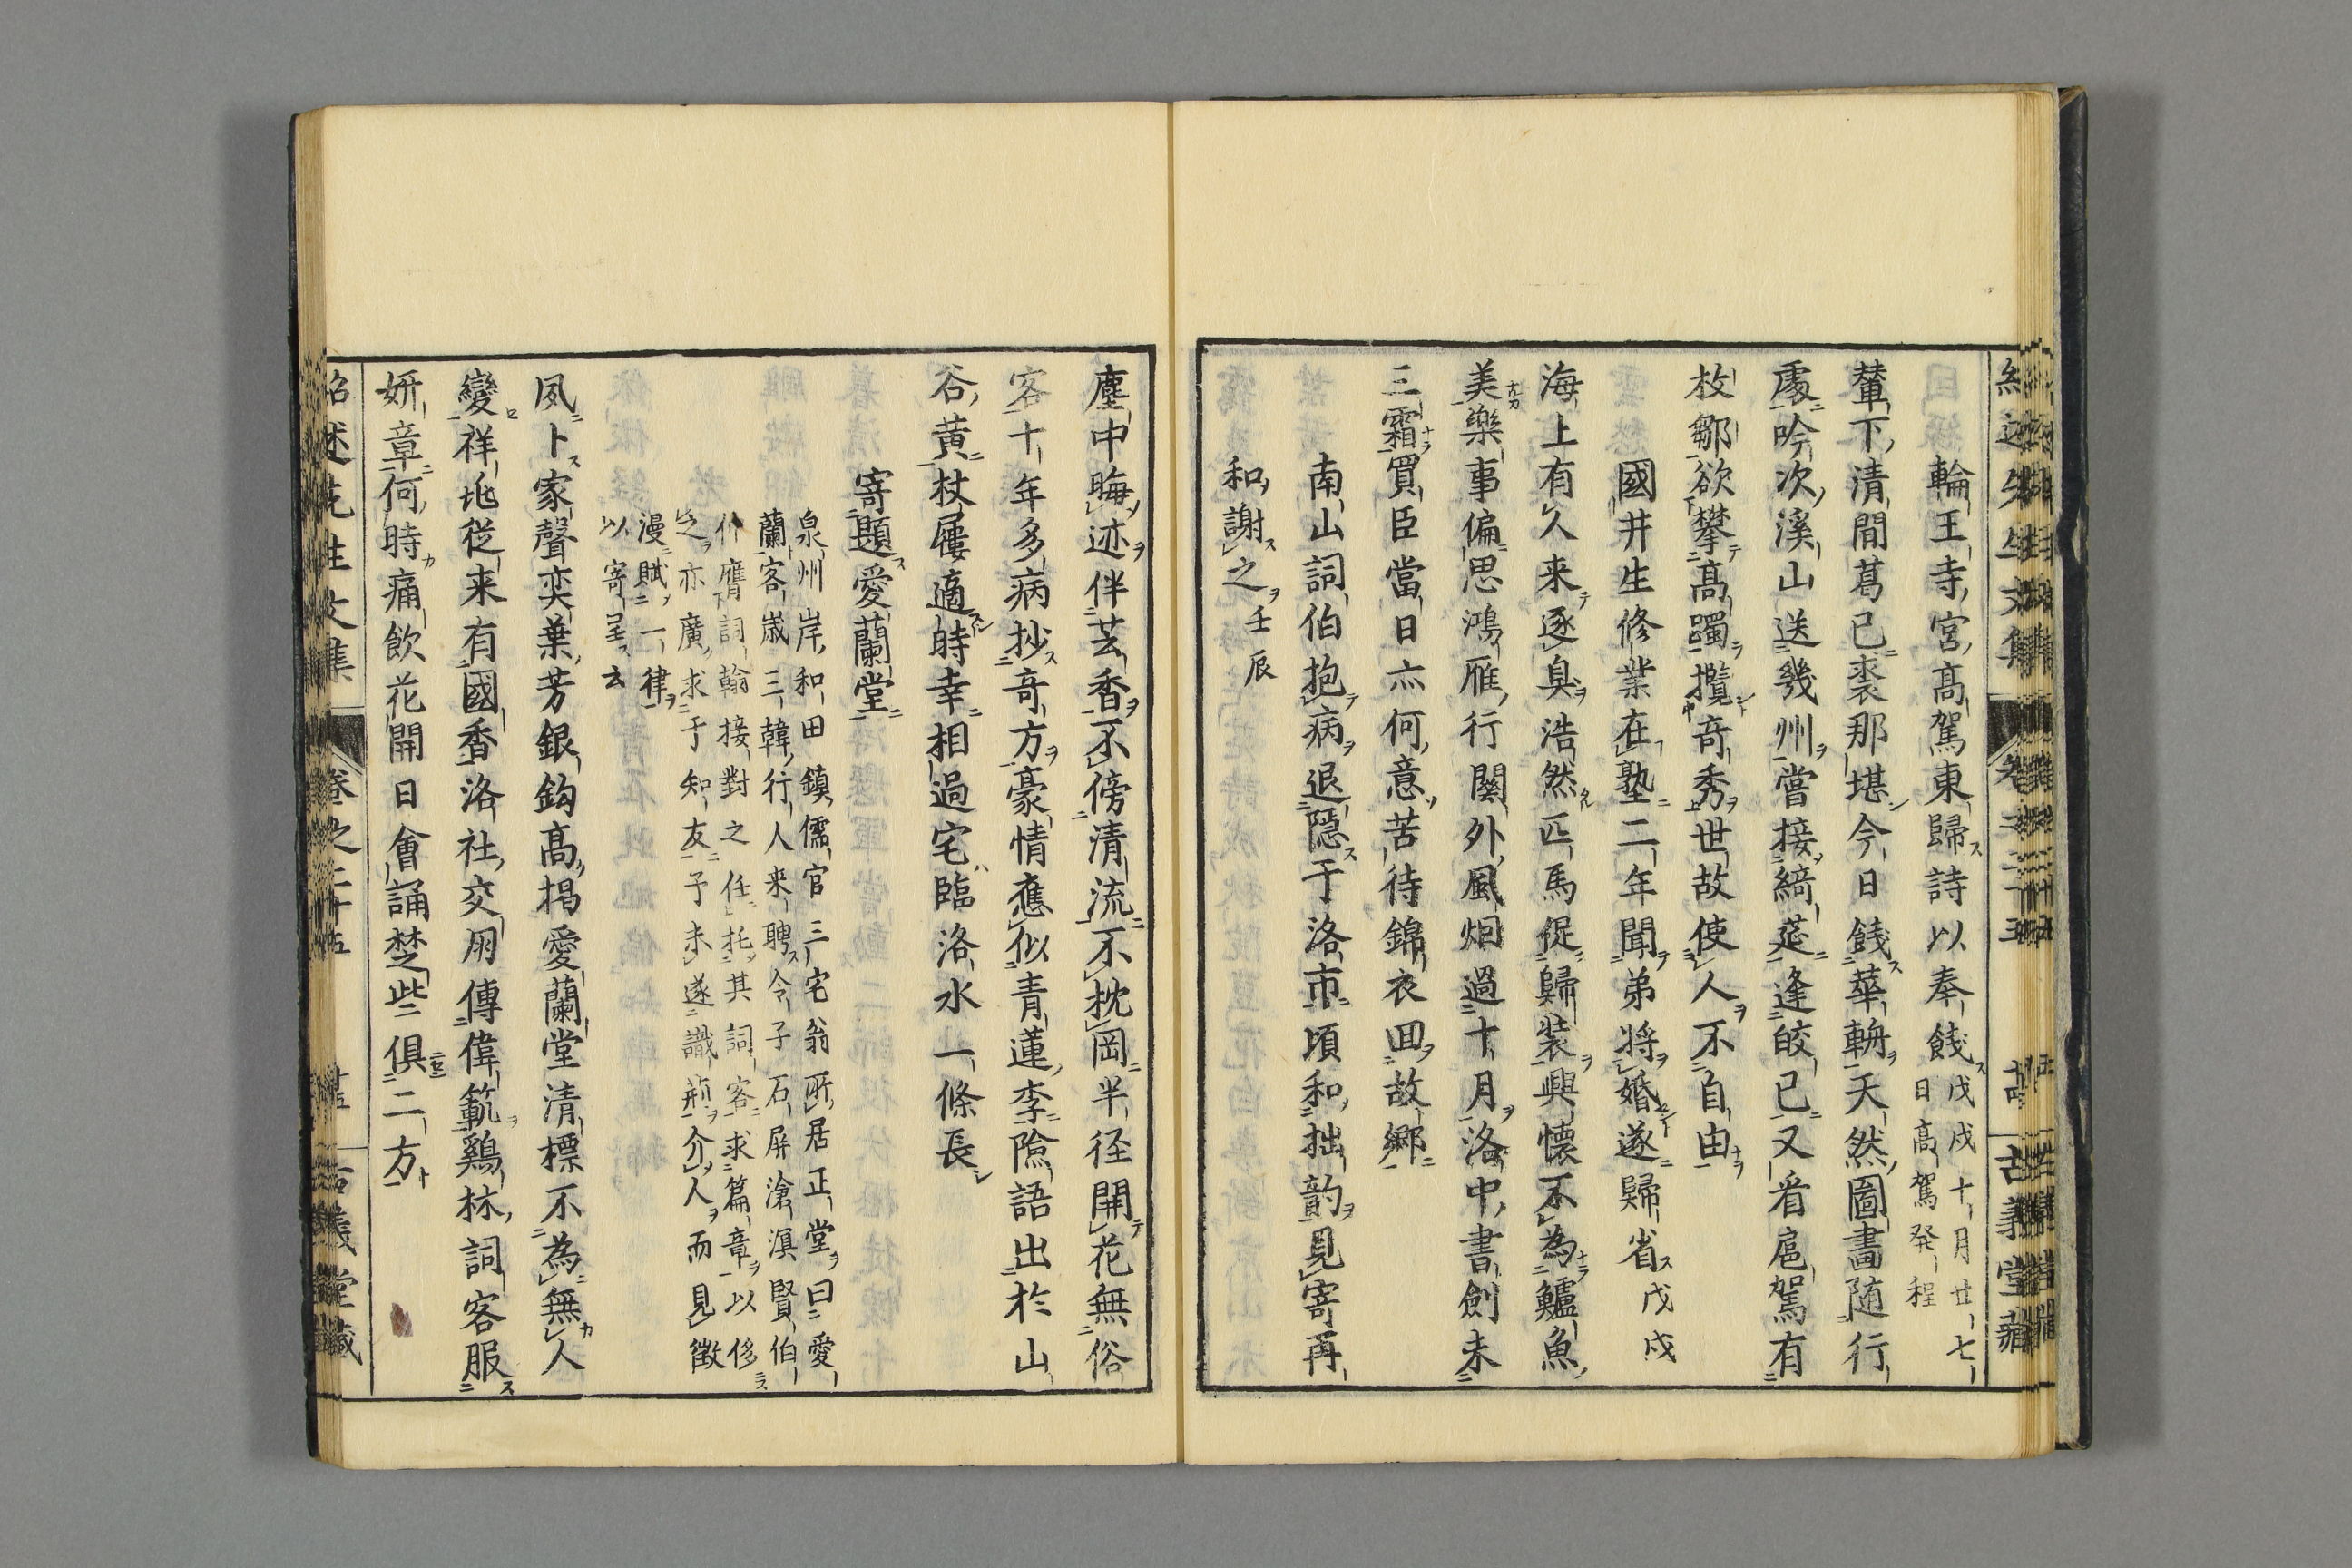 輪王寺宮高駕東歸詩以奉餞
戊戌十月廿七
日高駕発程
輦下清間葛已裘那堪今日餞華輈天然圖畫随行
處吟次溪山送幾州嘗接綺莚逢皎已又看扈駕有
枚鄒欲攀高躅攬奇秀世故使人不自由
國井生修業在塾二年聞弟将婚遂歸省戊戌
海上有人来逐臭浩然匹馬促歸裝興懐不為鱸魚
美樂事偏思鴻雁行関外風烟過十月洛中書劍未
三霜買臣當日亦何意苦待錦衣回故郷
南山詞伯抱病退隠于洛市頃和拙韵見寄再
和謝之壬辰
塵中晦迹伴芸香不傍清流不枕岡半径開花無俗
客十年多病抄奇方豪情應似青蓮李險語出於山
谷黄杖屨適時幸相過宅臨洛水一條長
寄題愛蘭堂
泉州岸和田鎮儒官三宅翁所居正堂曰愛
蘭客歳三韓行人来聘令子石屏滄溟賢伯
仲膺詞翰接對之任托其詞客求篇章以侈
之亦廣求于知友予未遂識荊介人而見徴
漫賦一律
以寄呈云
夙卜家聲奕葉芳銀鈎高掲愛蘭堂清標不為無人
變祥兆従来有國香洛社交朋傳偉範鷄林詞客服
妍章何時痛飲花開日會誦楚些倶二方
紹述先生文集
卷之二十五
古義堂藏